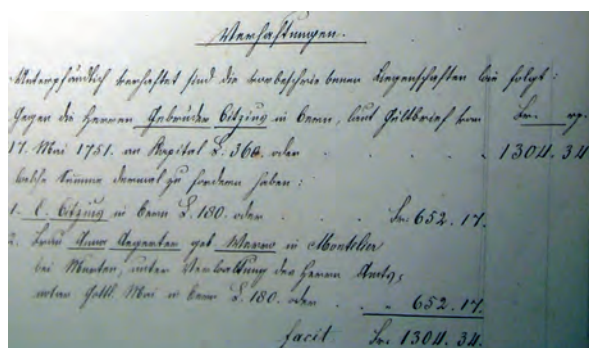 Verhaftungen.
Unterpfändlich verhaftet sind die vorbeschriebenen Liegenschaften wie folgt:
Gegen die Herren Gebrüder Citzing in Bern, laut Gültbrief vom Fr. rp.
17. Mai 1751. an Kapital L. 360. oder . . . . 1304. 34
welche Summe dermal zu fordern haben:
1. C. Citzing in Bern L. 180. oder . . . Fr. 652. 17.
2. Frau Anna geb. Werro in Montelier
bei Murten, unter Verwaltung des Herrn Amts-
notar Gottl. Mai in Bern L. 180. oder . . 652. 17.
facit Fr. 1304. 34.